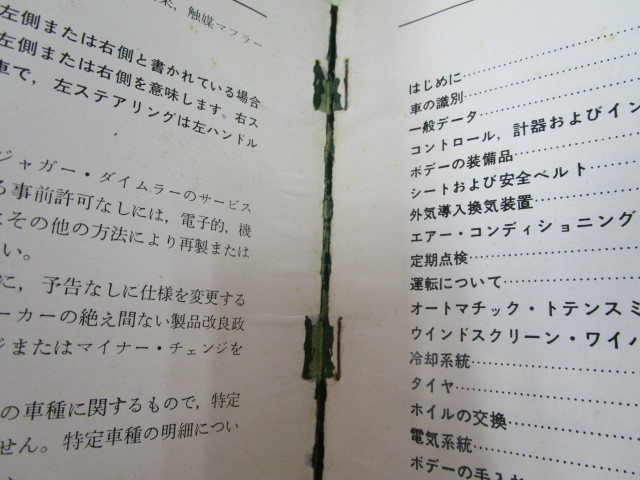 触媒マフラー
左側または右側と書かれている場合
左側または右側を意味します。右ス
車で, 左ステアリングは左ハンドル
ジャガー・ダイムラーのサービス
る事前許可なしには, 電子的, 機
その他の方法により再製または
い。
に, 予告なしに仕様を変更する
ーカーの絶え間ない製品改良政
ジまたはマイナー・チェンジを
の車種に関するもので, 特定
せん。特定車種の明細につい
はじめに
車の識別
一般データ
コントロール, 計器およびイン
ボデーの装備品
シートおよび安全ベルト
外気導入換気装置
エアー・コンディショニング
定期点検
運転について
オートマチック・トテンスミ
ウインドスクリーン・ワイパ
冷却系統
タイヤ
ホイルの交換
電気系統
ボデーの手入れ